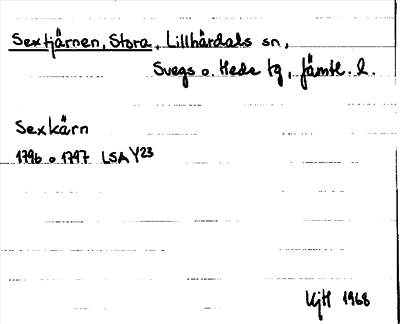 Sextjärnen, Stora, Lillhärdals sn,
Svegs o. Hede tg, Jämtl. l.
Sexkärn
1796 o 1797 LSA Y23
KjH 1968